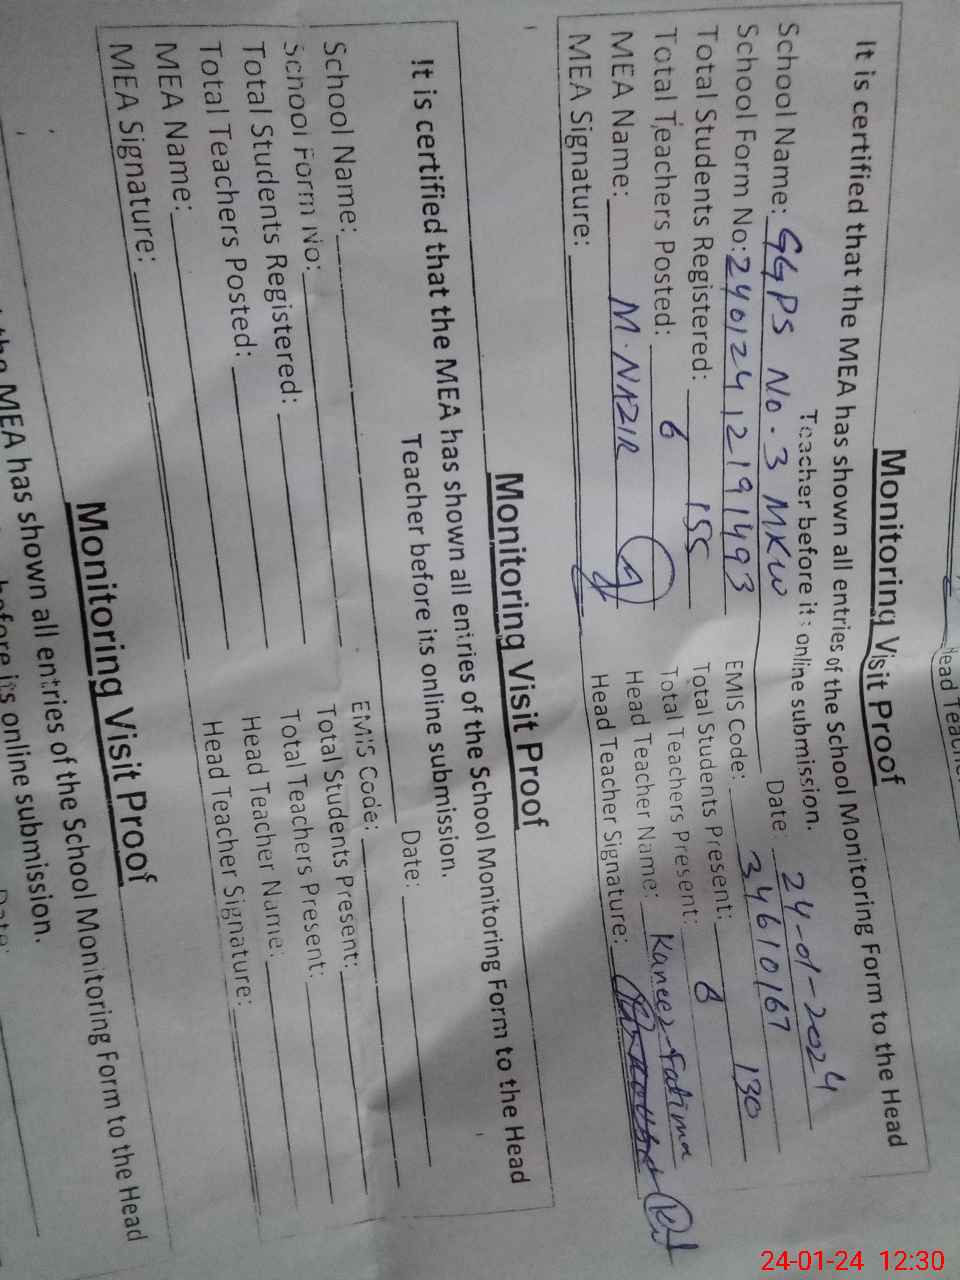 Head Teacher
Monitoring Visit Proof
It is certified that the MEA has shown all entries of the School Monitoring Form to the Head
Teacher before its online submission.
Date: 24-01-2024
School Name: GGPS No. 3 MKW
School Form No: 24012412191493 EMIS Code: 34610167
Total Students Registered: 155 Total Students Present: 130
Total Teachers Posted: 6 Total Teachers Present: 6
MEA Name: M. NAZIR Head Teacher Name: Kaneez Fatima
MEA Signature: Head Teacher Signature:
Monitoring Visit Proof
It is certified that the MEA has shown all entries of the School Monitoring Form to the Head
Teacher before its online submission.
Date:
School Name:
School Form No: EMIS Code:
Total Students Registered: Total Students Present:
Total Teachers Posted: Total Teachers Present:
MEA Name: Head Teacher Name:
MEA Signature: Head Teacher Signature:
Monitoring Visit Proof
the MEA has shown all entries of the School Monitoring Form to the Head
before its online submission.
Date:
24-01-24 12:30